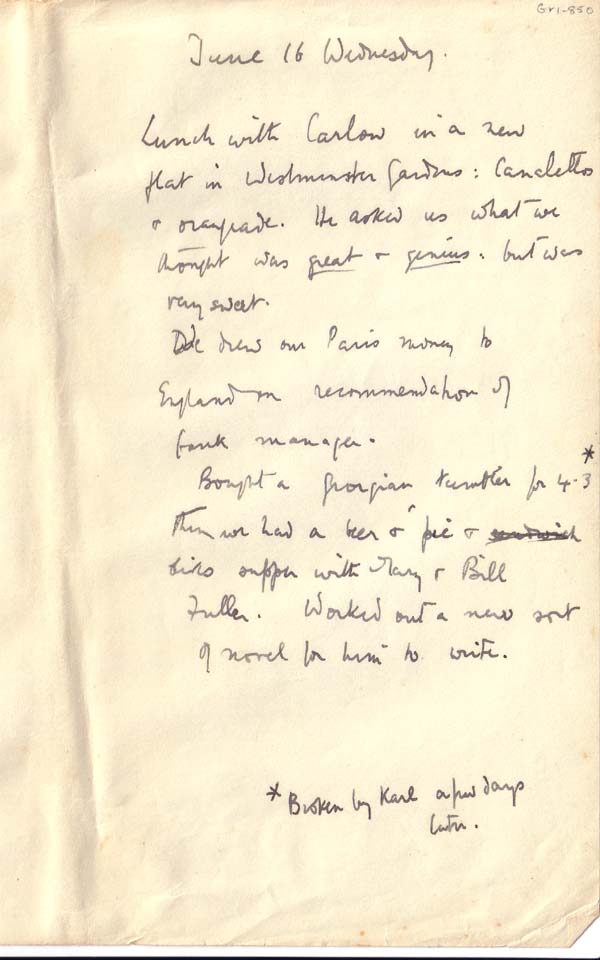 Gr1-850
June 16 Wednesday.
Lunch with Carlow in a new
flat in Westminster Gardens: Canalettos
& orangeade. He asked us what we
thought was great & genius: but was
very sweet.
We drew our Paris money to
England on recommendation of
bank manager.
Bought a Georgian tumbler for 4-3 *
Then we had a beer & pie & sandwich
supper with Mary & Bill
Fuller. Worked out a new sort
of novel for him to write.
* Broken by Karl a few days
later.